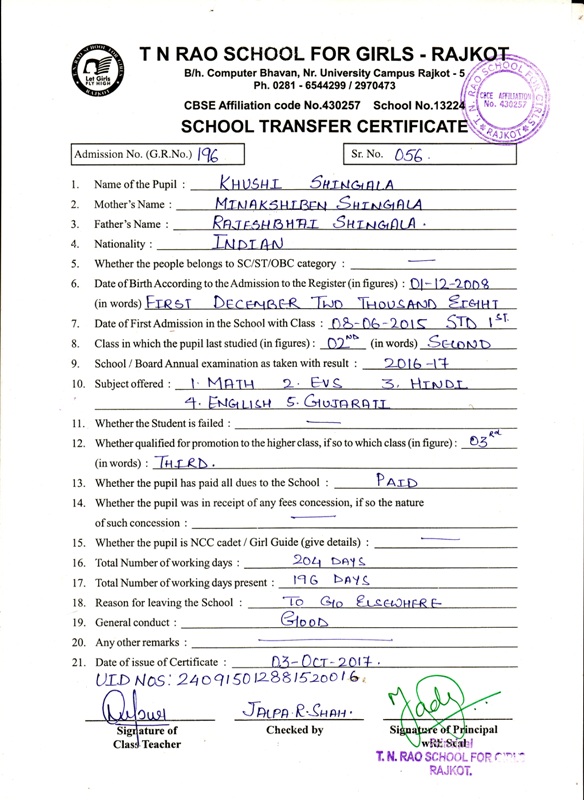 T. N. RAO SCHOOL FOR GIRLS
Let Girls
FLY HIGH
RAJKOT
T N RAO SCHOOL FOR GIRLS - RAJKOT
B/h. Computer Bhavan, Nr. University Campus Rajkot - 5
Ph. 0281 - 6544299 / 2970473
CBSE Affiliation code No.430257 School No.13224
T. N. RAO SCHOOL FOR GIRLS
CBCE AFFILIATION
No. 430257
★ RAJKOT ★
SCHOOL TRANSFER CERTIFICATE
Admission No. (G.R.No.) 196 Sr. No. 056.
1. Name of the Pupil : KHUSHI SHINGALA
2. Mother's Name : MINAKSHIBEN SHINGALA
3. Father's Name : RAJESHBHAI SHINGALA.
4. Nationality : INDIAN
5. Whether the people belongs to SC/ST/OBC category : —
6. Date of Birth According to the Admission to the Register (in figures) : 01-12-2008
(in words) FIRST DECEMBER TWO THOUSAND EIGHT
7. Date of First Admission in the School with Class : 08-06-2015 STD 1ST.
8. Class in which the pupil last studied (in figures) : 02ND (in words) SECOND
9. School / Board Annual examination as taken with result : 2016-17
10. Subject offered : 1. MATH 2. EVS 3. HINDI
4. ENGLISH 5. GUJARATI
11. Whether the Student is failed : —
12. Whether qualified for promotion to the higher class, if so to which class (in figure) : 03Rd
(in words) : THIRD.
13. Whether the pupil has paid all dues to the School : PAID
14. Whether the pupil was in receipt of any fees concession, if so the nature
of such concession : —
15. Whether the pupil is NCC cadet / Girl Guide (give details) : —
16. Total Number of working days : 204 DAYS
17. Total Number of working days present : 196 DAYS
18. Reason for leaving the School : TO GO ELSEWHERE
19. General conduct : GOOD
20. Any other remarks : —
21. Date of issue of Certificate : 03-OCT-2017.
UID NOS: 240915012881520016.
JALPA.R.SHAH.
Signature of Checked by Signature of Principal
Class Teacher Seal
T. N. RAO SCHOOL FOR GIRLS
RAJKOT.